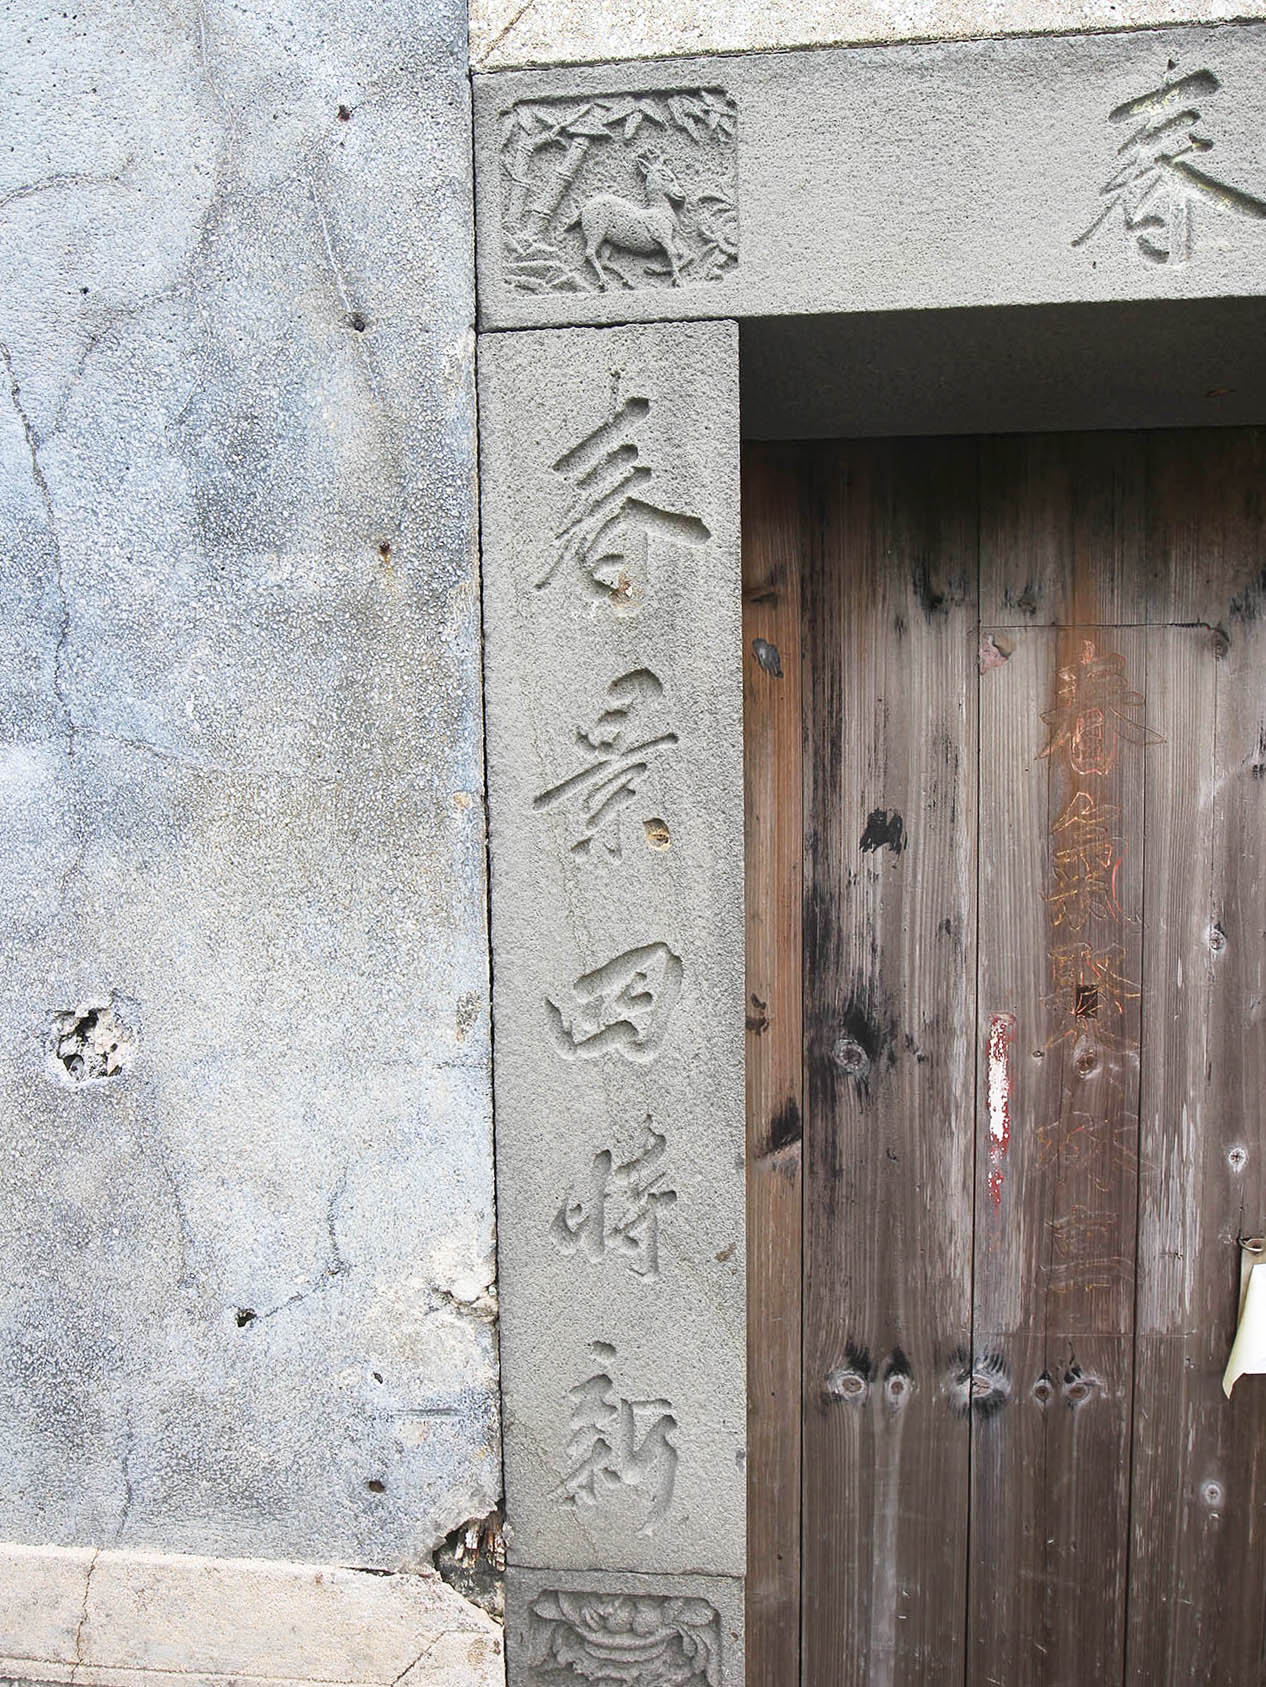 春
春氣
春景四時新